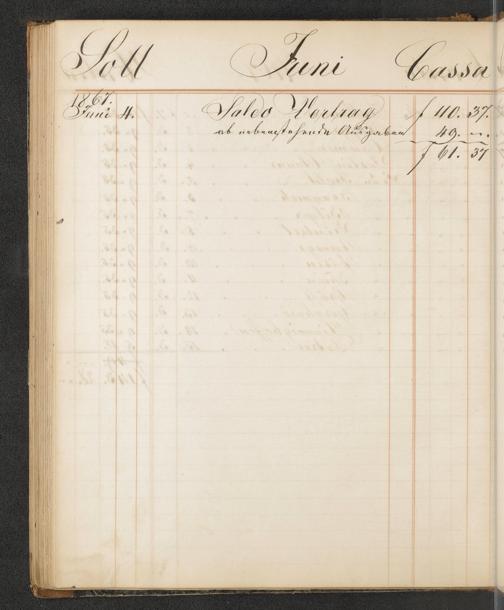 Soll Juni Cassa
1867.
Juni 4. Saldo Vortrag f 110. 37.
ab nebenstehende Ausgaben 49. —.
f 61. 37